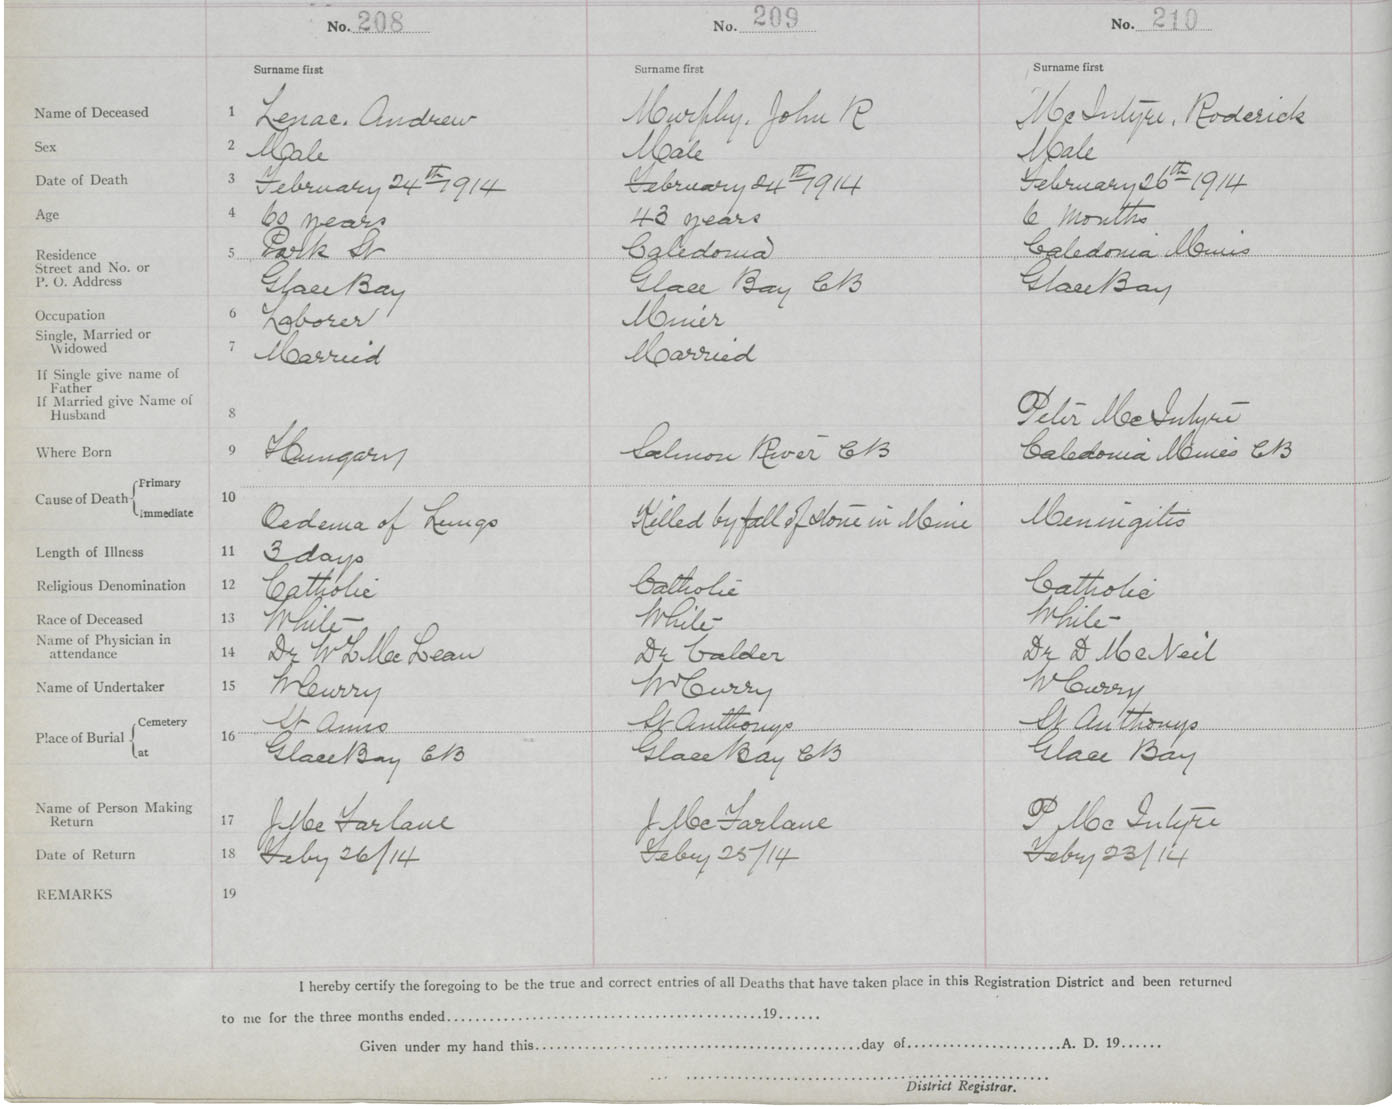 No. 208 No. 209 No. 210
Surname first Surname first Surname first
Name of Deceased 1 Lenac. Andrew Murphy. John R McIntyre, Roderick
Sex 2 Male Male Male
Date of Death 3 February 24th 1914 February 24th 1914 February 26th 1914
Age 4 60 years 43 years 6 Months
Residence 5 Park St Caledonia Caledonia Mines
Street and No. or
P. O. Address Glace Bay Glace Bay CB Glace Bay
Occupation 6 Laborer Miner
Single, Married or
Widowed 7 Married Married
If Single give name of
Father
If Married give Name of
Husband 8 Peter McIntyre
Where Born 9 Hungary Salmon River CB Caledonia Mines CB
Cause of Death { Primary
Immediate 10 Oedema of Lungs Killed by fall of stone in Mine Meningitis
Length of Illness 11 3 days
Religious Denomination 12 Catholic Catholic Catholic
Race of Deceased 13 White White White
Name of Physician in
attendance 14 Dr W L McLean Dr Calder Dr D McNeil
Name of Undertaker 15 W Curry W Curry W Curry
Place of Burial { Cemetery St Anns St Anthonys St Anthonys
at 16 Glace Bay CB Glace Bay CB Glace Bay
Name of Person Making
Return 17 J McFarlane J McFarlane P McIntyre
Date of Return 18 Feby 26/14 Feby 25/14 Feby 23/14
REMARKS 19
I hereby certify the foregoing to be the true and correct entries of all Deaths that have taken place in this Registration District and been returned
to me for the three months ended..........19......
Given under my hand this..........day of..........A. D. 19......
District Registrar.